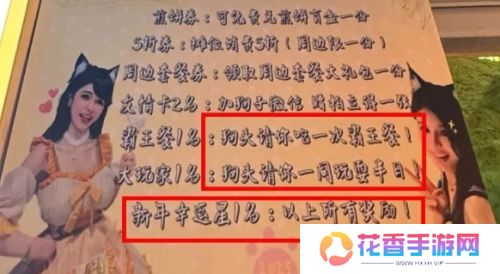 煎饼券：可免费兑煎饼盲盒一份
5折券：摊位消费5折（周边限一份）
周边套餐券：领取周边套餐大礼包一份
友情卡2名：加狗子微信 随拍立得一张
霸王餐1名：狗头请你吃一次霸王餐！
大玩家1名：狗头请你一同玩耍半日！
新年幸运星1名：以上所有奖励！
花香手游网
WWW.HXHY-VIP.COM